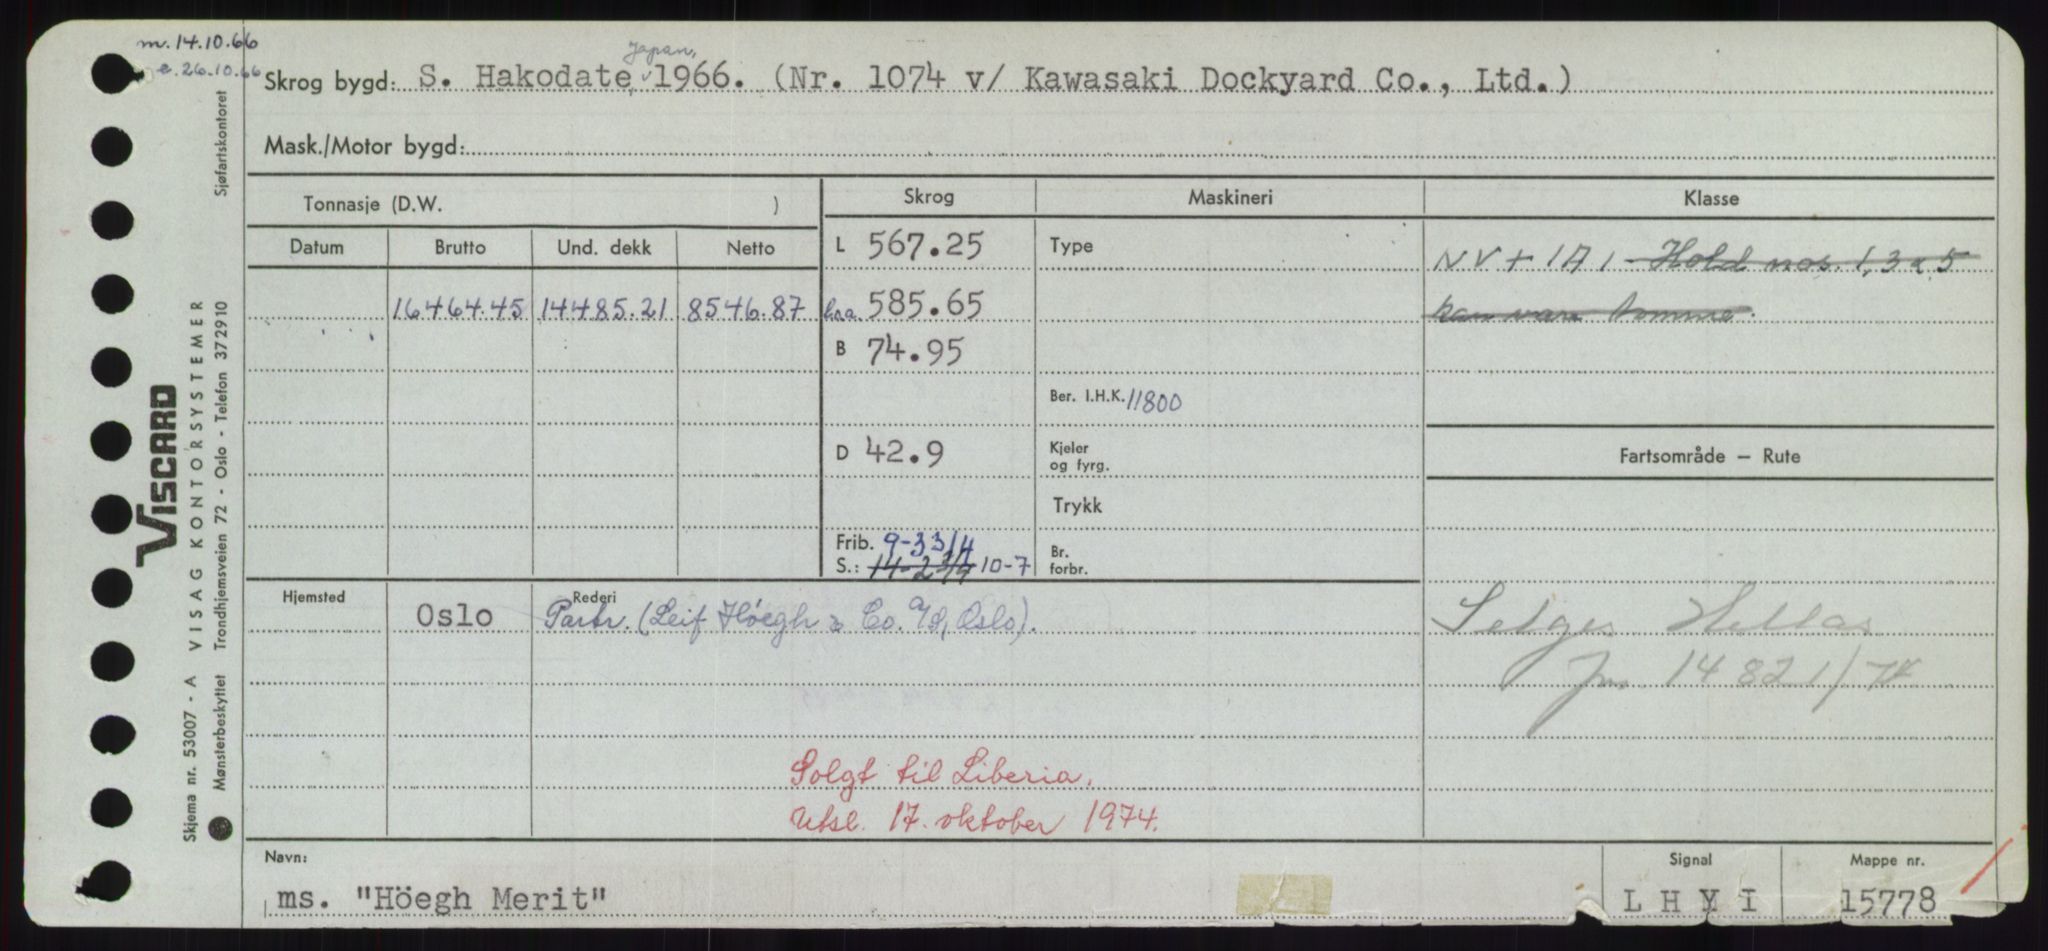 m. 14.10.66
e. 26.10.66
Japan,
Skrog bygd: S. Hakodate, 1966. (Nr. 1074 v/ Kawasaki Dockyard Co., Ltd.)
Mask./Motor bygd:
Tonnasje (D.W. )
Skrog
Maskineri
Klasse
Datum Brutto Und. dekk Netto
L 567.25
Type
NV + 1A1 - Hold nos. 1, 3 & 5
16464.45 14485.21 8546.87
l.o.a. 585.65
kan være tomme.
B 74.95
Ber. I.H.K. 11800
D 42.9
Kjeler
og fyrg.
Fartsområde – Rute
Trykk
Frib. 9-3 3/4
S.: 14-2 3/4 10-7
Br.
forbr.
Hjemsted
Oslo
Rederi
Partr. (Leif Höegh & Co. A/S, Oslo).
Selges Hellas
Jnr. 14821/74
Solgt til Liberia.
Utsl. 17. oktober 1974.
Navn:
ms. "Höegh Merit"
Signal
Mappe nr.
15778
VISCARD
VISAG KONTORSYSTEMER
Skjema nr. 53007 - A
Mønsterbeskyttet Trondhjemsveien 72 - Oslo - Telefon 372910
Sjøfartskontoret